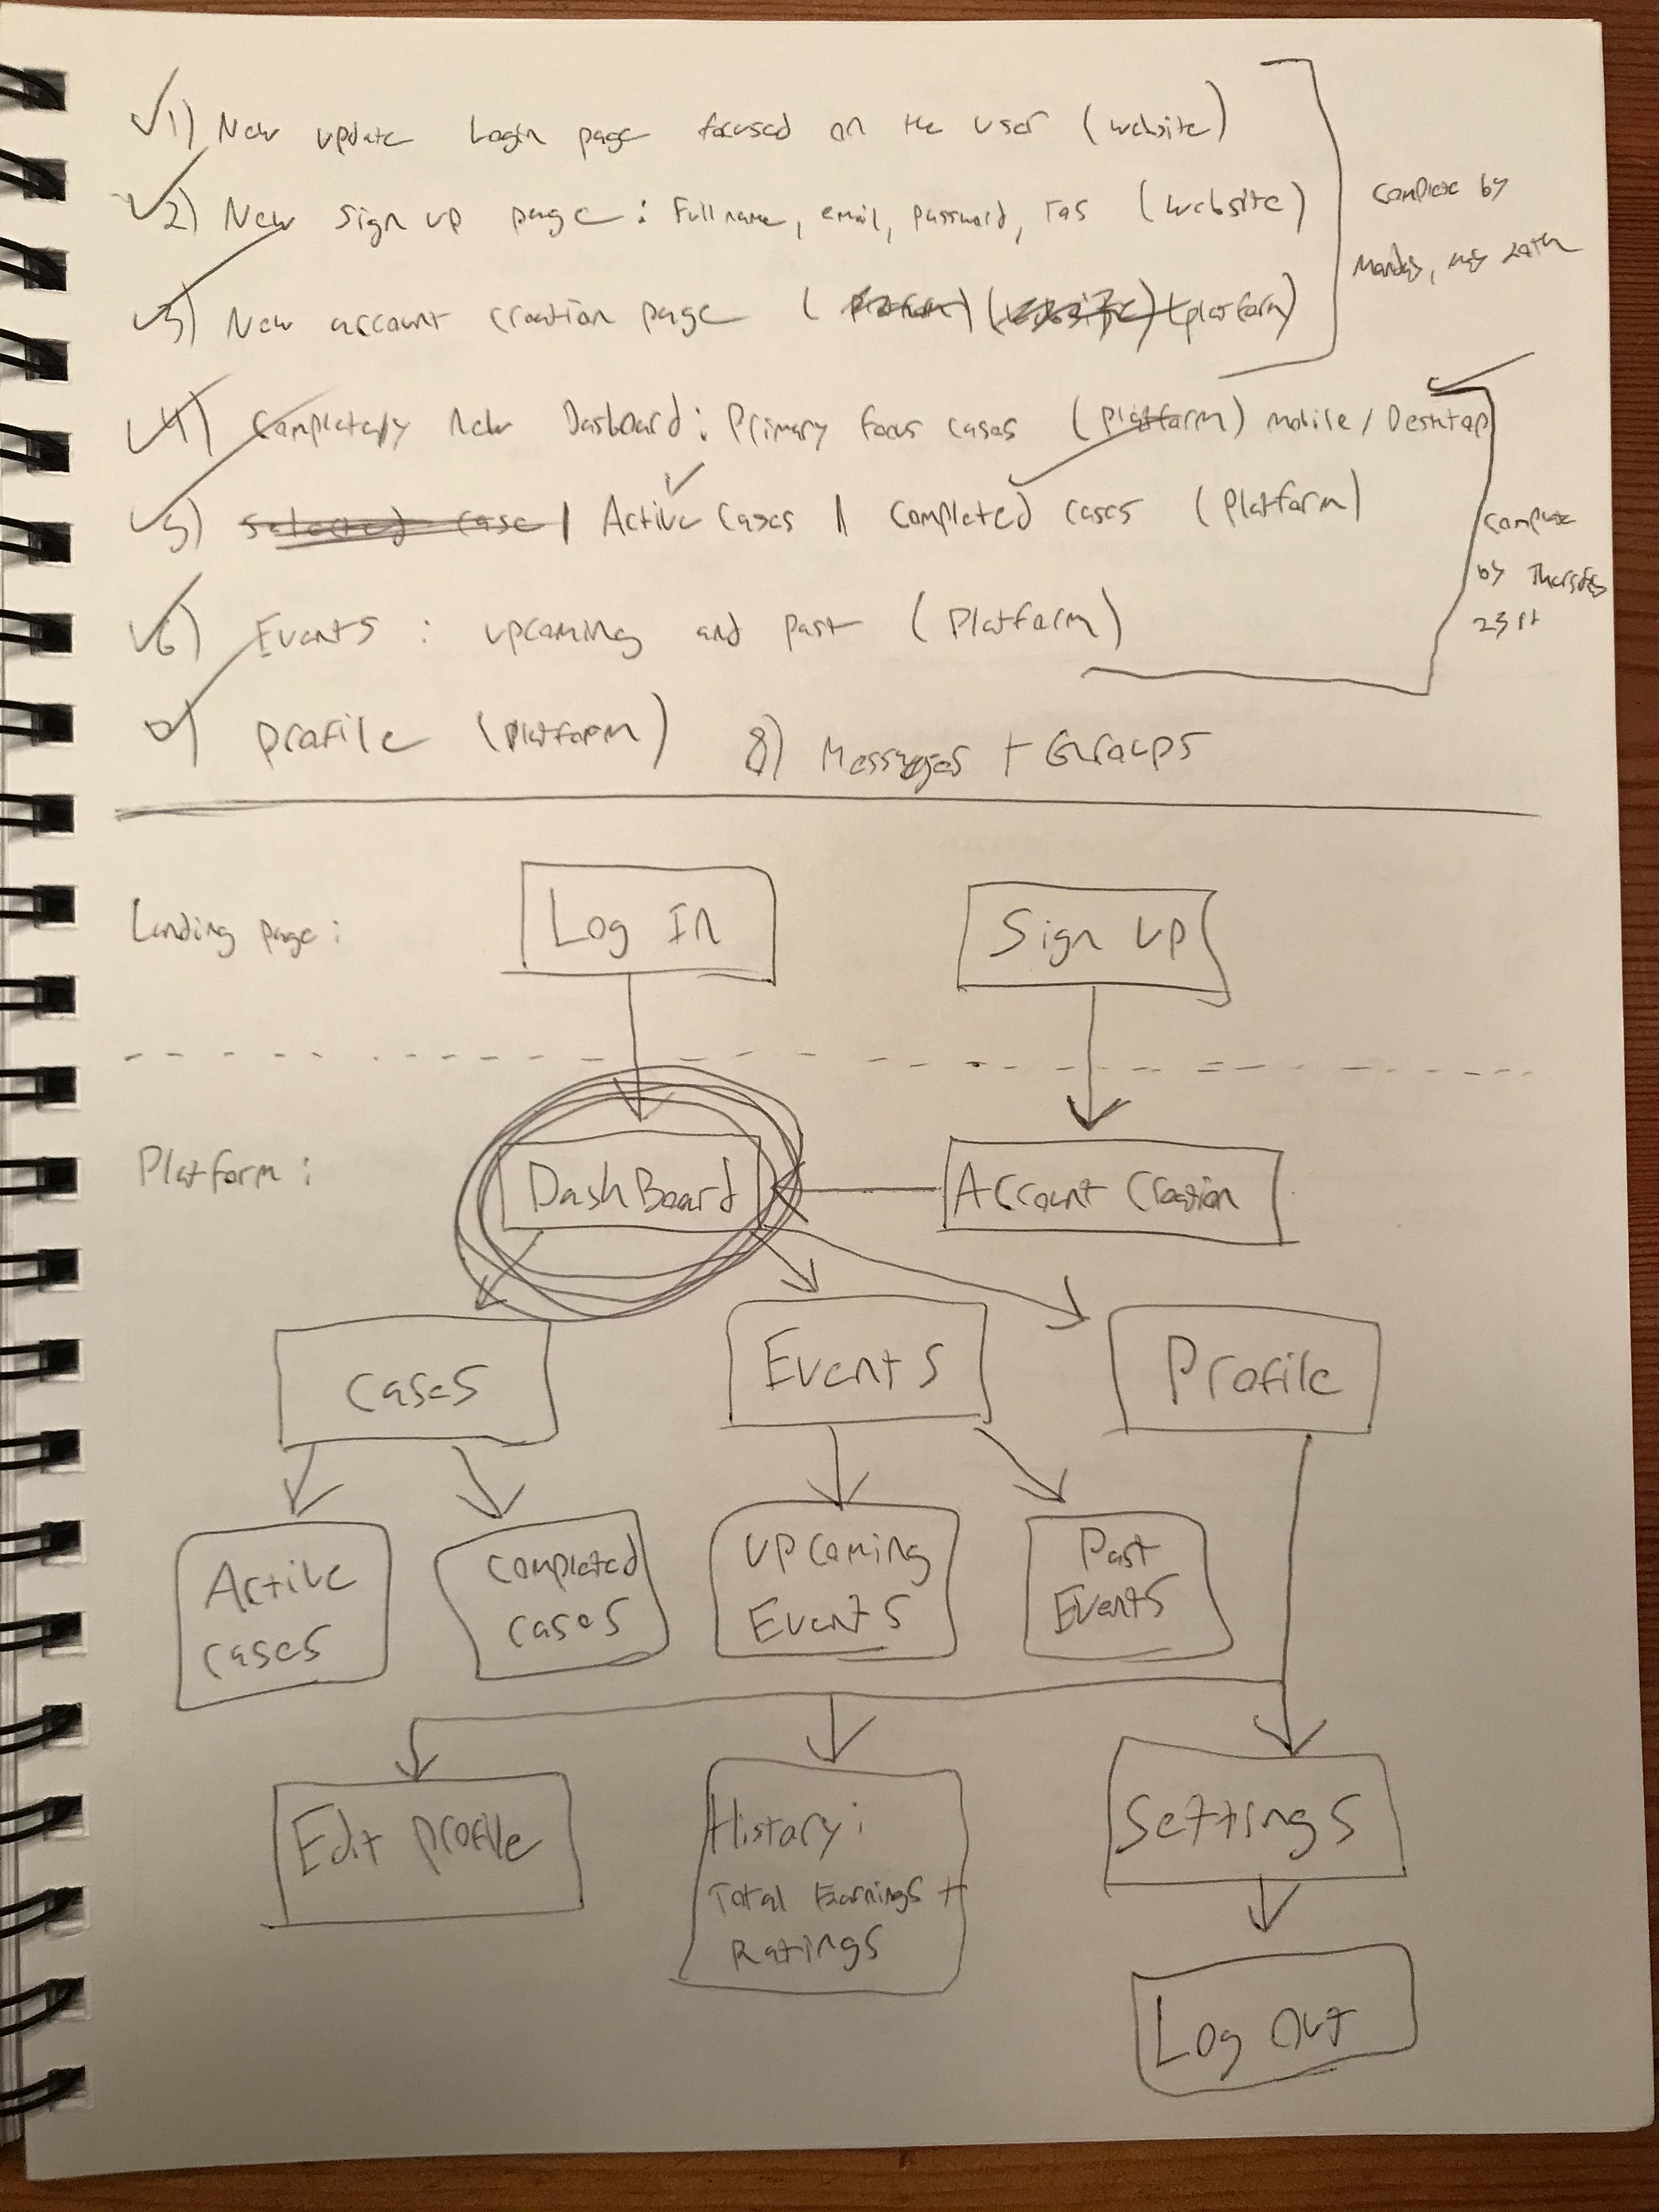 1) New update Login page focused on the user (website)
2) New sign up page: Full name, email, password, TOS (website)
3) New account creation page (platform) (website) (platform)
complete by
Monday,
4) Completely New Dasboard: Primary focus cases (platform) mobile / Desktop
5) selected case | Active Cases || Completed cases (Platform)
6) Events: upcoming and past (Platform)
complete
by Thursday
profile (platform) 8) Messages + Groups
Landing page:
Log In
Sign up
Platform:
DashBoard
Account Creation
Cases
Events
Profile
Active
cases
completed
cases
upcoming
Events
Past
Events
Edit profile
History:
Total Earnings +
Ratings
Settings
Log out